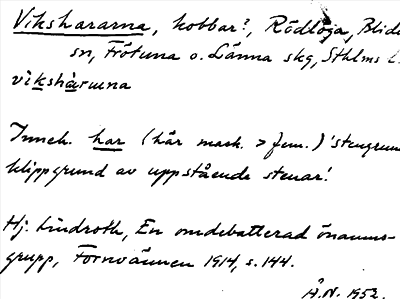 Vikshararna, kobbar?, Rödlöga, Blidö
sn, Frötuna o. Länna skg, Sthlms l.
vikshàrụna
Inneh. har (här mask. > fem.) 'stengrund
klippgrund av uppstående stenar'.
Hj. Lindroth, En omdebatterad önamns-
grupp, Fornvännen 1914, s. 144.
Å.N. 1952.